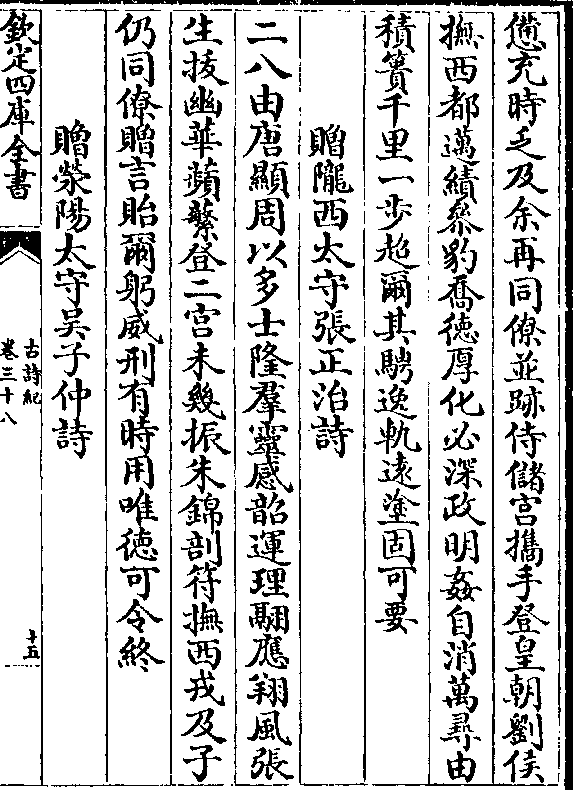 僃充時乏及余再同僚並跡侍儲宫攜手登皇朝劉侯
撫西都邁績參豹喬徳厚化必深政明姦自消萬尋由
積簣千里一步超爾其騁逸軌逺塗固可要
贈隴西太守張正治詩
二八由唐顯周以多士隆羣靈感韶運理翮應翔風張
生拔幽華蘋蘩登二宫未幾振朱錦剖符撫西戎及子
仍同僚贈言貽爾躬威刑有時用唯徳可令終
贈滎陽太守吴子仲詩
欽定四庫全書
古詩紀
卷三十八
十五